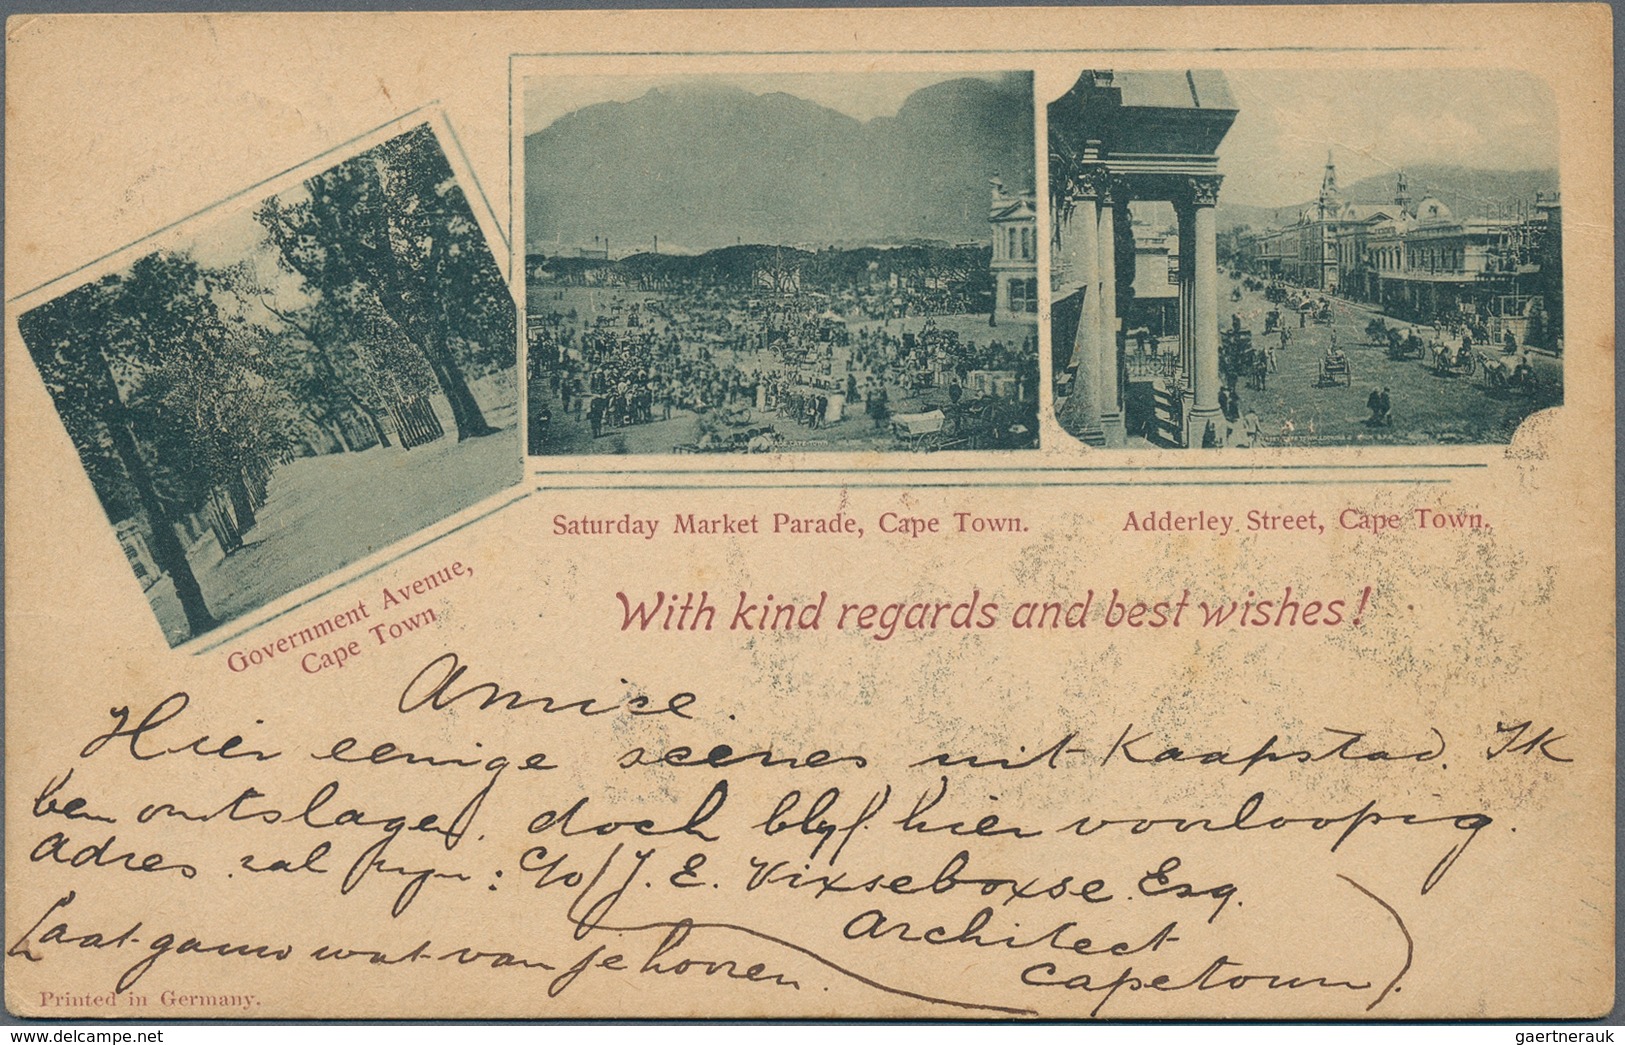 Saturday Market Parade, Cape Town.
Adderley Street, Cape Town.
Government Avenue,
Cape Town
With kind regards and best wishes!
Amice.
Hier eenige scenes uit Kaapstad. Ik
ben ontslagen. doch blyf hier voorloopig.
Adres zal zyn: C/o J. E. Vixseboxse. Esq.
Architect
Capetown).
Laat gauw wat van je hooren.
Printed in Germany.
www.delcampe.net
gaertnerauk